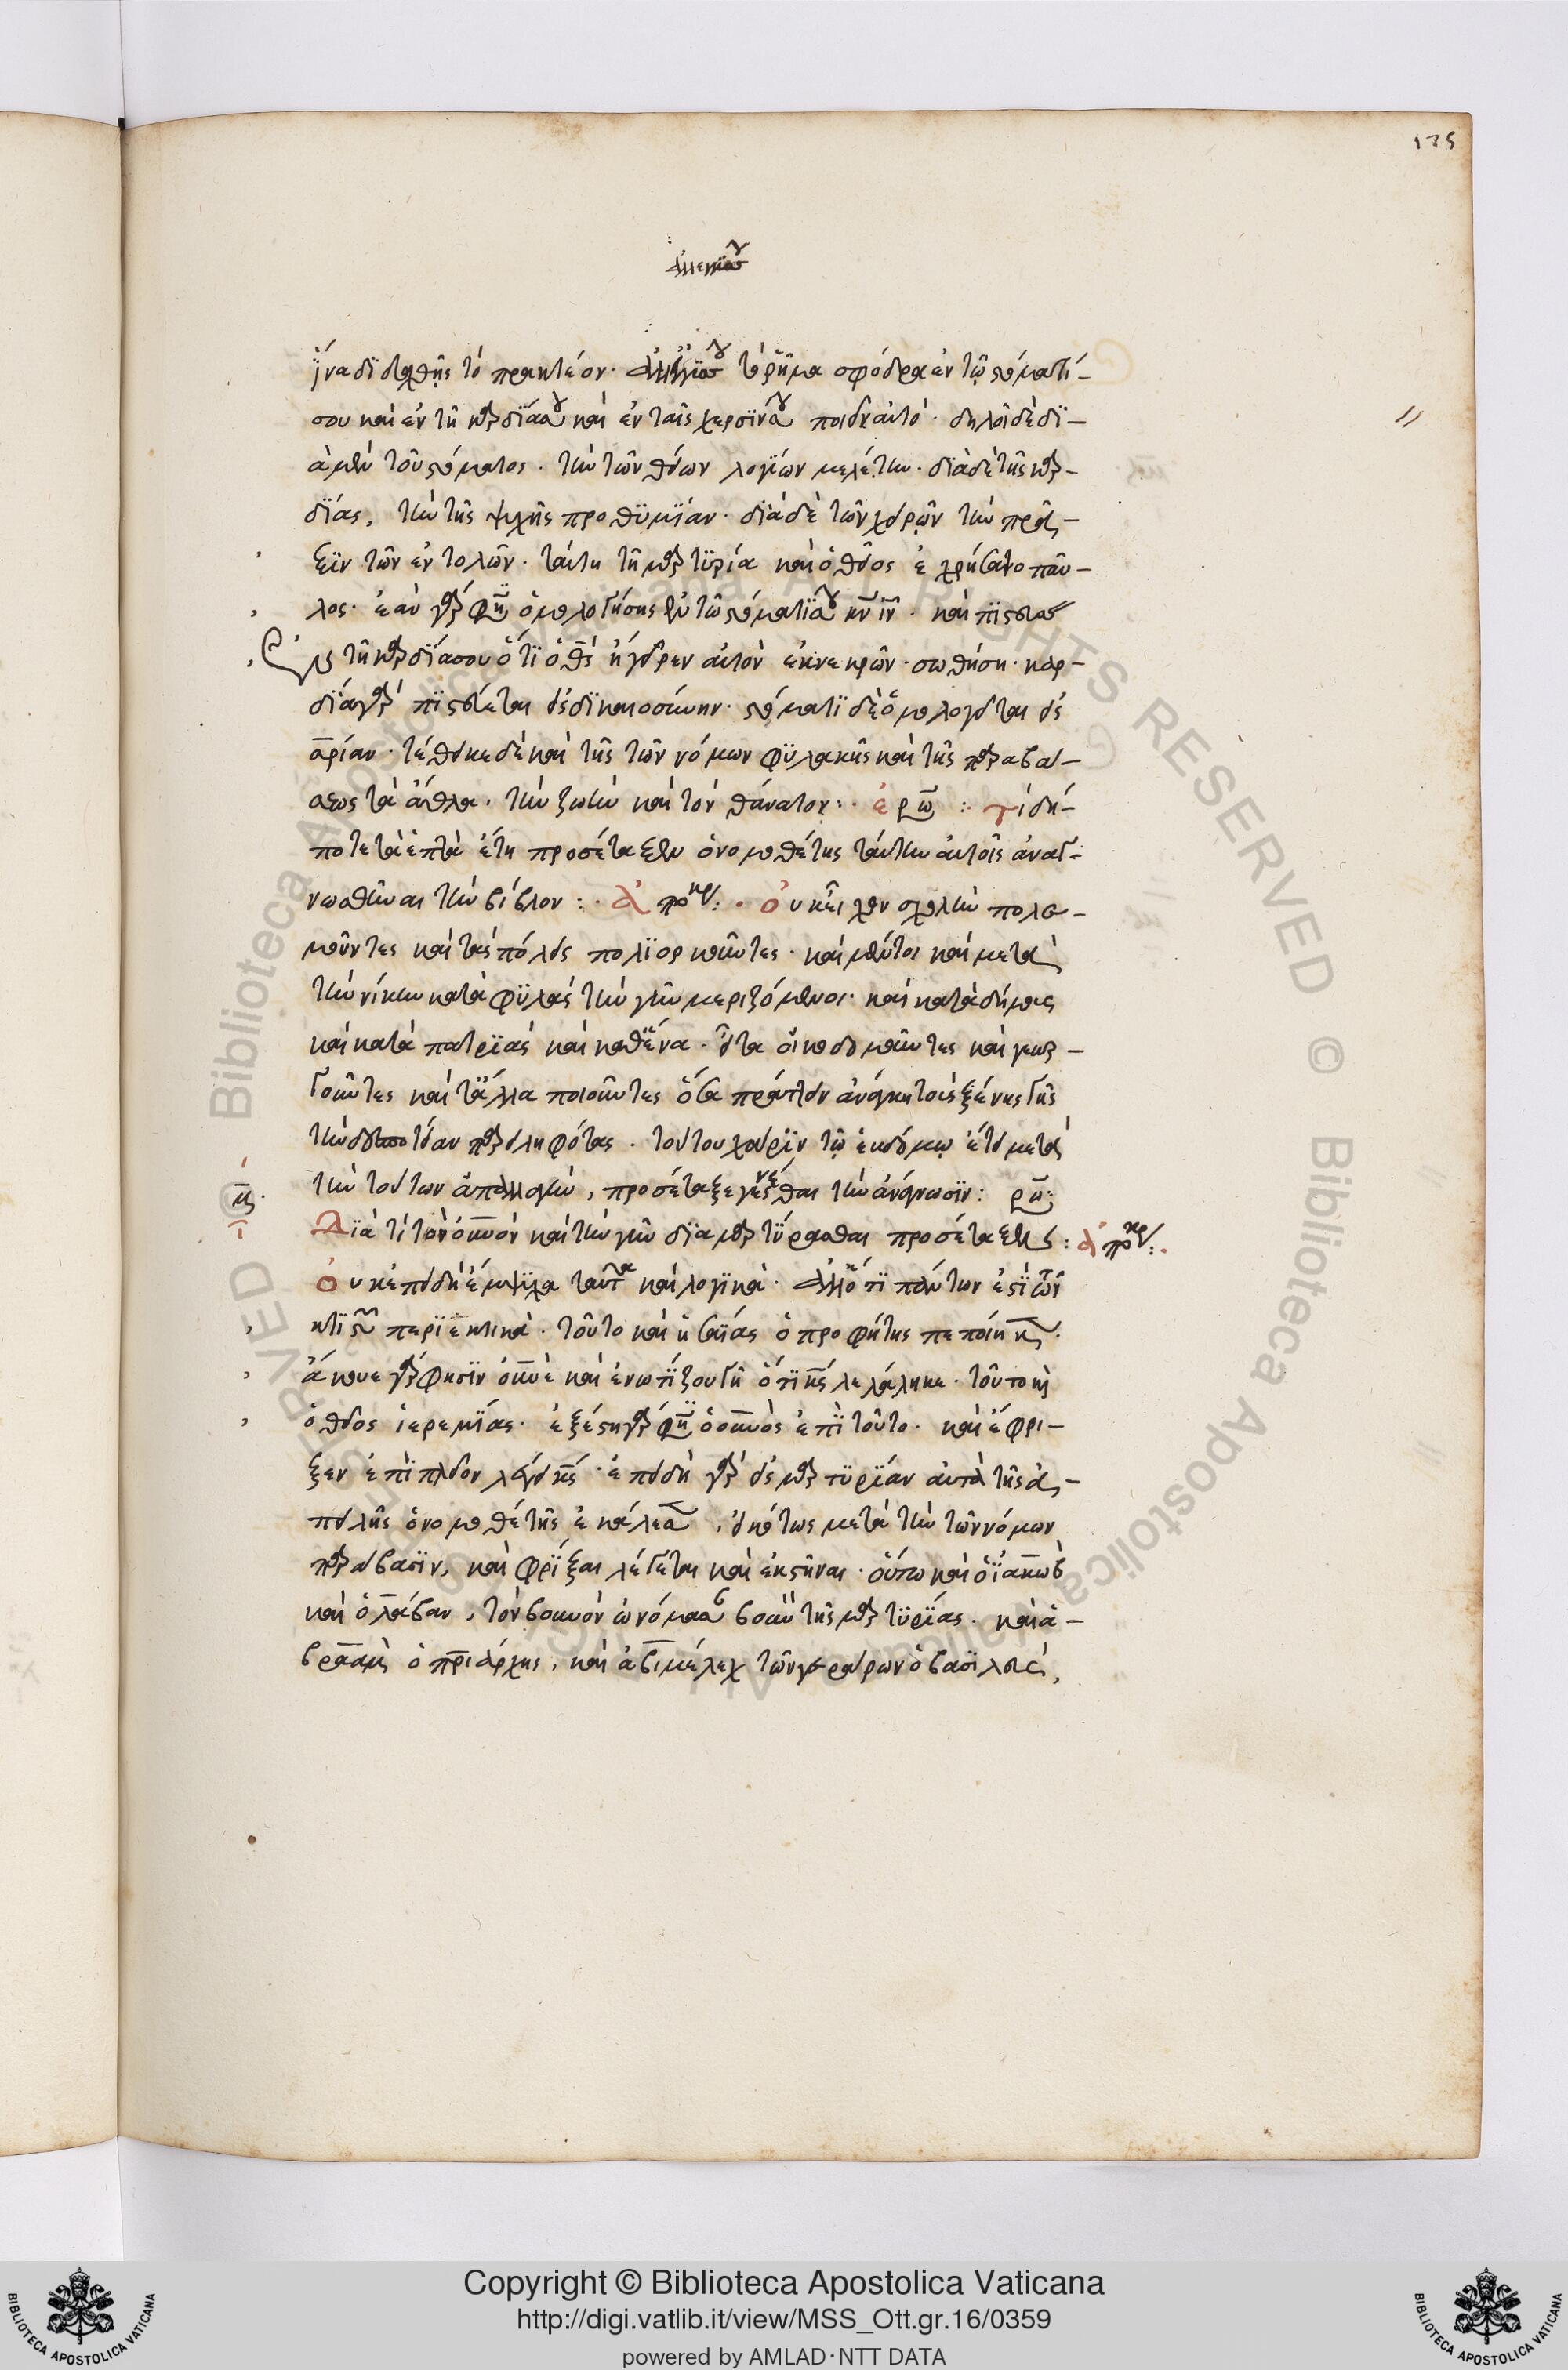 175
ἵνα διδαχθῇς τὸ πρακτέον· ἀλλ' ἐγγύς σου τὸ ῥῆμα σφόδρα ἐν τῷ στόματί
σου καὶ ἐν τῇ καρδία σου καὶ ἐν ταῖς χερσίν σου ποιεῖν αὐτό· δηλοῖ δὲ δι
ὰ μὲν τοῦ στόματος· τὴν τῶν θείων λογίων μελέτην· διὰ δὲ τῆς καρ
δίας, τὴν τῆς ψυχῆς προθυμίαν· διὰ δὲ τῶν χειρῶν τὴν πρᾶ
ξιν τῶν ἐντολῶν· ταύτῃ τῇ μαρτυρία καὶ ὁ θεῖος ἐχρήσατο παῦ
λος· ἐὰν γάρ φησιν ὁμολογήσης ἐν τῶ στόματί σου κν ιν· καὶ πιστεύσ
ης τῇ καρδία σου ὅτι ὁ θς ἤγειρεν αὐτὸν ἐκ νεκρῶν· σωθήση· καρ
δία γὰρ πιστεύεται εἰς δικαιοσύνην· στόματι δὲ ὁμολογεῖται εἰς
σρίαν· τέθεικε δὲ καὶ τῆς τῶν νόμων φυλακῆς καὶ τῆς παραβά
σεως τὰ ἆθλα, τὴν ζωὴν καὶ τὸν θάνατον: ἐρω: τί δή
ποτε τὰ ἑπτὰ ἔτη προσέταξεν ὁ νομοθέτης ταύτην αὐτοῖς ἀναγ
νωσθῆναι τὴν βίβλον: ἀποκρ: οὐκ εἶχον σχολὴν πολε
μοῦντες καὶ τὰς πόλεις πολιορκοῦντες· καὶ μέντοι καὶ μετὰ
τὴν νίκην κατὰ φυλὰς τὴν γῆν μεριζόμενοι· καὶ κατὰ δήμους
καὶ κατὰ πατριὰς καὶ καθένα· εἶτα οἰκοδομοῦντες καὶ γεωρ
γοῦντες καὶ τἄλλα ποιοῦντες ὅσα πράττειν ἀνάγκη τοὺς ξένης γῆς
τὴν δεσποτείαν παρειληφότας· τούτου χάριν τῷ ἑβδόμῳ ἔτει μετὰ
τὴν τούτων ἀπαλλαγὴν, προσέταξε γενέσθαι τὴν ἀνάγνωσιν:
Διὰ τί τὸν οὐνον καὶ τὴν γῆν διαμαρτύρασθαι προσέταξεν: ἀποκρ:
οὐκ ἐπειδὴ ἔμψυχα ταῦτα καὶ λογικὰ· ἀλλ' ὅτι πάντων ἐστὶ τῶν
κτιστῶν περιεκτικὰ· τοῦτο καὶ ἡσαΐας ὁ προφήτης πεποίηκεν·
ἄκουε γάρ φησιν οὐνὲ καὶ ἐνωτίζου γῆ ὅτι κς λελάληκε· τοῦτο καὶ
ὁ θεῖος ἱερεμίας· ἐξέστη γάρ φησιν ὁ οὐνὸς ἐπὶ τοῦτο· καὶ ἔφρι
ξεν ἐπὶ πλεῖον λέγει κς· ἐπειδὴ γὰρ εἰς μαρτυρίαν αὐτὰ τῆς ἀ
πειλῆς ὁ νομοθέτης ἐκάλεσεν, εἰκότως μετὰ τὴν τῶν νόμων
παράβασιν, καὶ φρίξαι λέγεται καὶ ἐκστῆναι· οὕτω καὶ ὁ ἰακὼβ
καὶ ὁ λάβαν, τὸν βουνὸν ὠνόμασαν βουνὸν τῆς μαρτυρίας· καὶ ἀ
βραὰμ ὁ πριάρχης, καὶ ἀβιμέλεχ τῶν γεράρων ὁ βασιλεὺς,
Copyright © Biblioteca Apostolica Vaticana
http://digi.vatlib.it/view/MSS_Ott.gr.16/0359
powered by AMLAD·NTT DATA